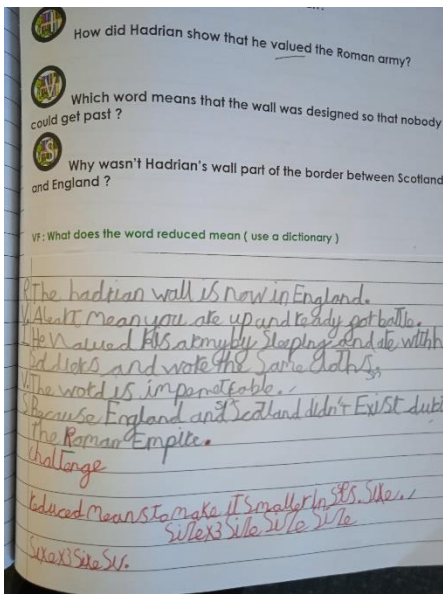 How did Hadrian show that he valued the Roman army?
Which word means that the wall was designed so that nobody
could get past ?
Why wasn't Hadrian's wall part of the border between Scotland
and England ?
VF: What does the word reduced mean ( use a dictionary )
R. The hadrian wall is now in England.
V. Alert mean you are up and ready for battle.
He valued his army by sleeping and
and wore the same cloths
V. The word is
S. Because England and Scotland didn't Exist
the Roman Empire.
challenge
reduced means to make it smaller in size.
size x3 size size size